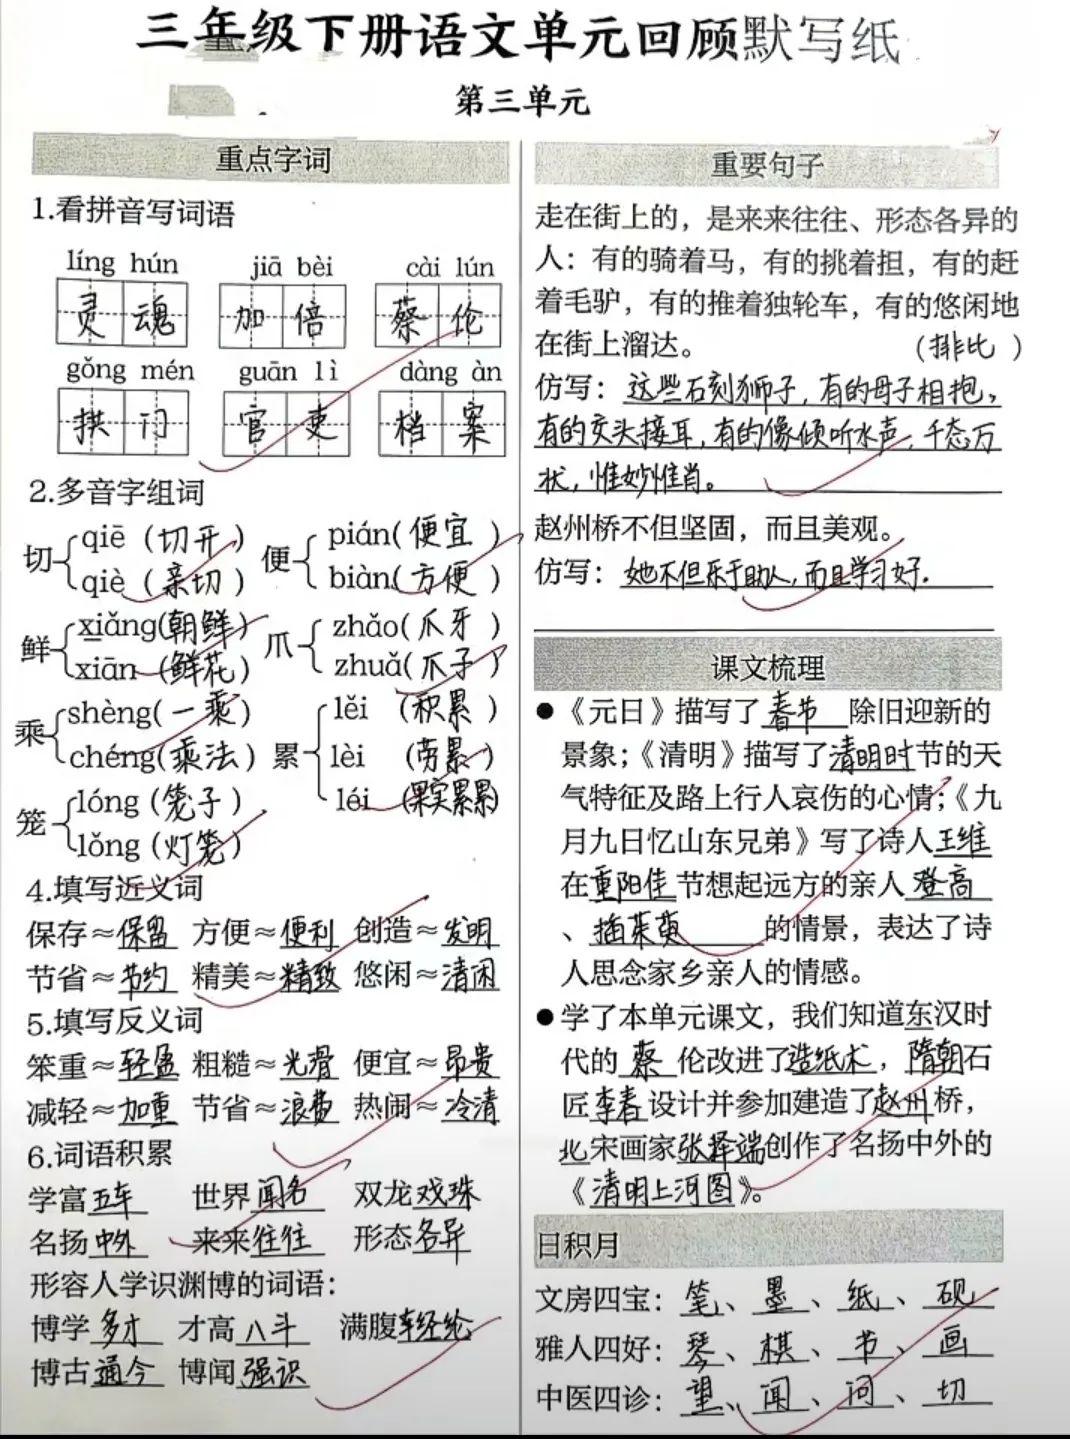 三年级下册语文单元回顾默写纸
第三单元
重点字词
1.看拼音写词语
líng hún jiā bèi cài lún
灵魂 加倍 蔡伦
gǒng mén guān lì dàng àn
拱门 官吏 档案
2.多音字组词
切 qiē（切开） 便 pián（便宜）
qiè（亲切） biàn（方便）
鲜 xiǎng（朝鲜） 爪 zhǎo（爪牙）
xiān（鲜花） zhuǎ（爪子）
乘 shèng（一乘） 累 lěi（积累）
chéng（乘法） lèi（劳累）
笼 lóng（笼子） léi（果实累累）
lǒng（灯笼）
4.填写近义词
保存≈保留 方便≈便利 创造≈发明
节省≈节约 精美≈精致 悠闲≈清闲
5.填写反义词
笨重≈轻盈 粗糙≈光滑 便宜≈昂贵
减轻≈加重 节省≈浪费 热闹≈冷清
6.词语积累
学富五车 世界闻名 双龙戏珠
名扬中外 来来往往 形态各异
形容人学识渊博的词语：
博学多才 才高八斗 满腹经纶
博古通今 博闻强识
重要句子
走在街上的，是来来往往、形态各异的
人：有的骑着马，有的挑着担，有的赶
着毛驴，有的推着独轮车，有的悠闲地
在街上溜达。 （排比）
仿写：这些石刻狮子，有的母子相抱，
有的交头接耳，有的像倾听水声，千态万
状，惟妙惟肖。
赵州桥不但坚固，而且美观。
仿写：她不但乐于助人，而且学习好．
课文梳理
●《元日》描写了春节除旧迎新的
景象；《清明》描写了清明时节的天
气特征及路上行人哀伤的心情；《九
月九日忆山东兄弟》写了诗人王维
在重阳佳节想起远方的亲人登高
、插茱萸的情景，表达了诗
人思念家乡亲人的情感。
●学了本单元课文，我们知道东汉时
代的蔡伦改进了造纸术，隋朝石
匠李春设计并参加建造了赵州桥，
北宋画家张择端创作了名扬中外的
《清明上河图》。
日积月
文房四宝：笔、墨、纸、砚
雅人四好：琴、棋、书、画
中医四诊：望、闻、问、切